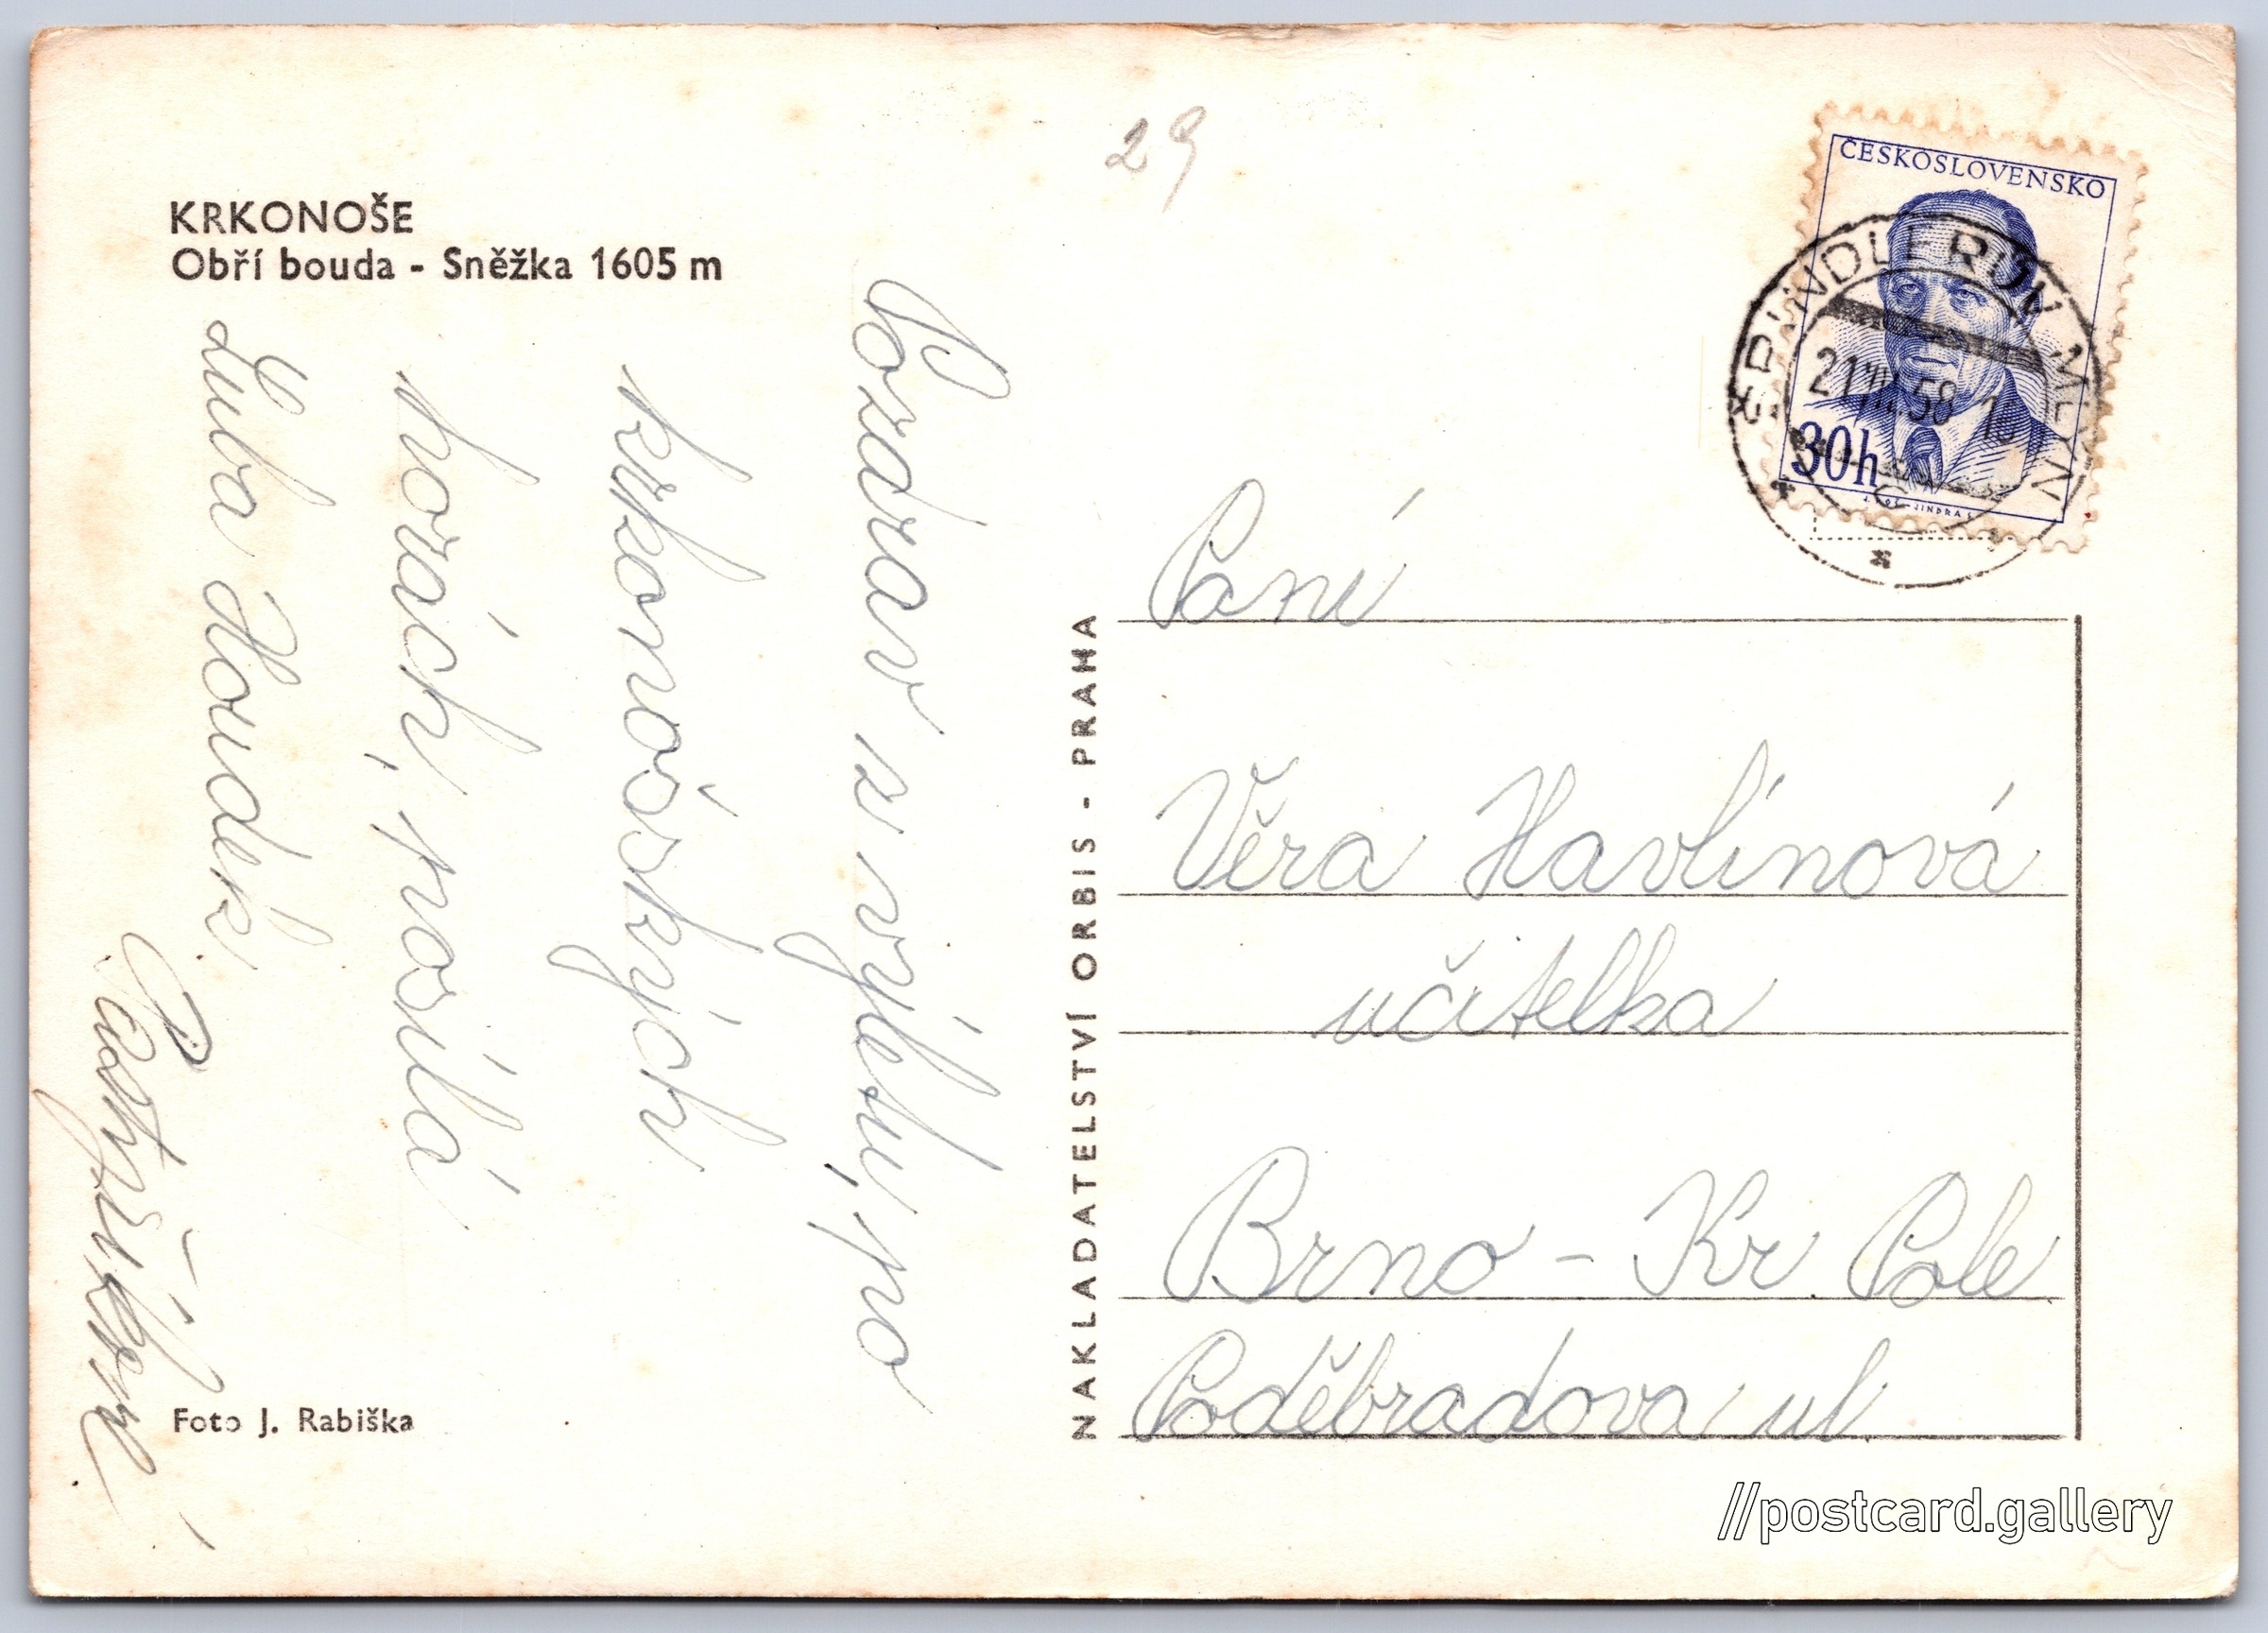 KRKONOŠE
Obří bouda - Sněžka 1605 m
Pozdrav z výletu, po
krkonošských
horách, posílá
Luba Houdek
Foto J. Rabiška
NAKLADATELSTVÍ ORBIS - PRAHA
29
ČESKOSLOVENSKO
30h
ŠPINDLERŮV MLÝN
Paní
Věra Havlínová
učitelka
Brno - Kr. Pole
Poděbradova ul.
//postcard.gallery